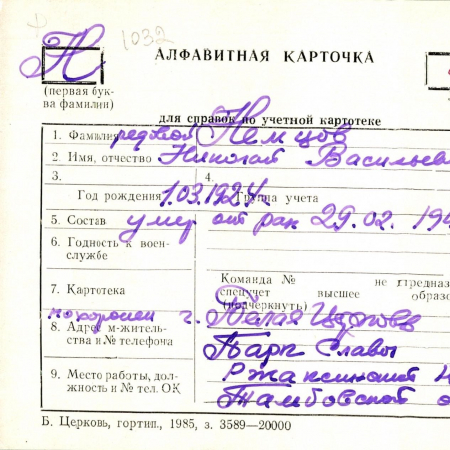 Н 1032
АЛФАВИТНАЯ КАРТОЧКА
(первая бук-
ва фамилии)
для справок по учетной картотеке
1. Фамилия рядовой Немцов
2. Имя, отчество Николай Васильеви
3.
4.
Год рождения 1.03.1924 Группа учета
5. Состав умер от ран 29.02.194
6. Годность к воен-
службе
Команда № не предназ
7. Картотека спецучет высшее образо
(подчеркнуть)
похоронен г. Белая Церковь
8. Адрес м-житель-
ства и № телефона
Парк Славы
9. Место работы, дол-
жность и № тел. ОК
Ржаксинский
Тамбовской о
Б. Церковь, гортип., 1985, з. 3589—20000